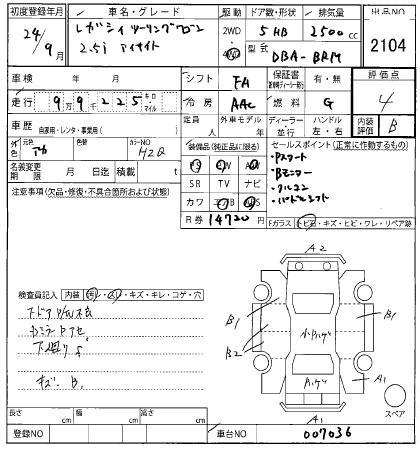 初度登録年月 車名・グレード 駆動 ドア数・形状 排気量 出品NO
24/9月 レガシィツーリングワゴン 2WD 4WD 5 HB 2500cc 2104
2.5i アイサイト 型式 DBA-BRM
車検 年 月 シフト FA 保証書 有・無 評価点
走行 99225 キロ・マイル 冷房 AAC 燃料 G 4
車歴 自家用・レンタ・事業用( ) 定員 人 外車モデル 年 ディーラー 並行 ハンドル 左・右 内装評価 B
外色 元色 色替 カラーNO H2Q 装備品(純正品に限る) セールスポイント(正常に作動するもの)
名義変更期限 月 日迄 積載 t PS PW
SR TV ナビ
・Pスタート
・Bモニター
・クルコン
・パドルシフト
注意事項(欠品・修復・不具合箇所および状態) カワ エアB
R券 14720 Fガラス トビ石・キズ・ヒビ・ワレ・リペア跡
A2
検査員記入 内装 汚レ・スレ・キズ・キレ・コゲ・穴
B1 B1
B2 小カハゲ
A1
キズ B,
スペア
長さ cm 幅 cm 高さ cm A1
登録NO 車台NO 007036